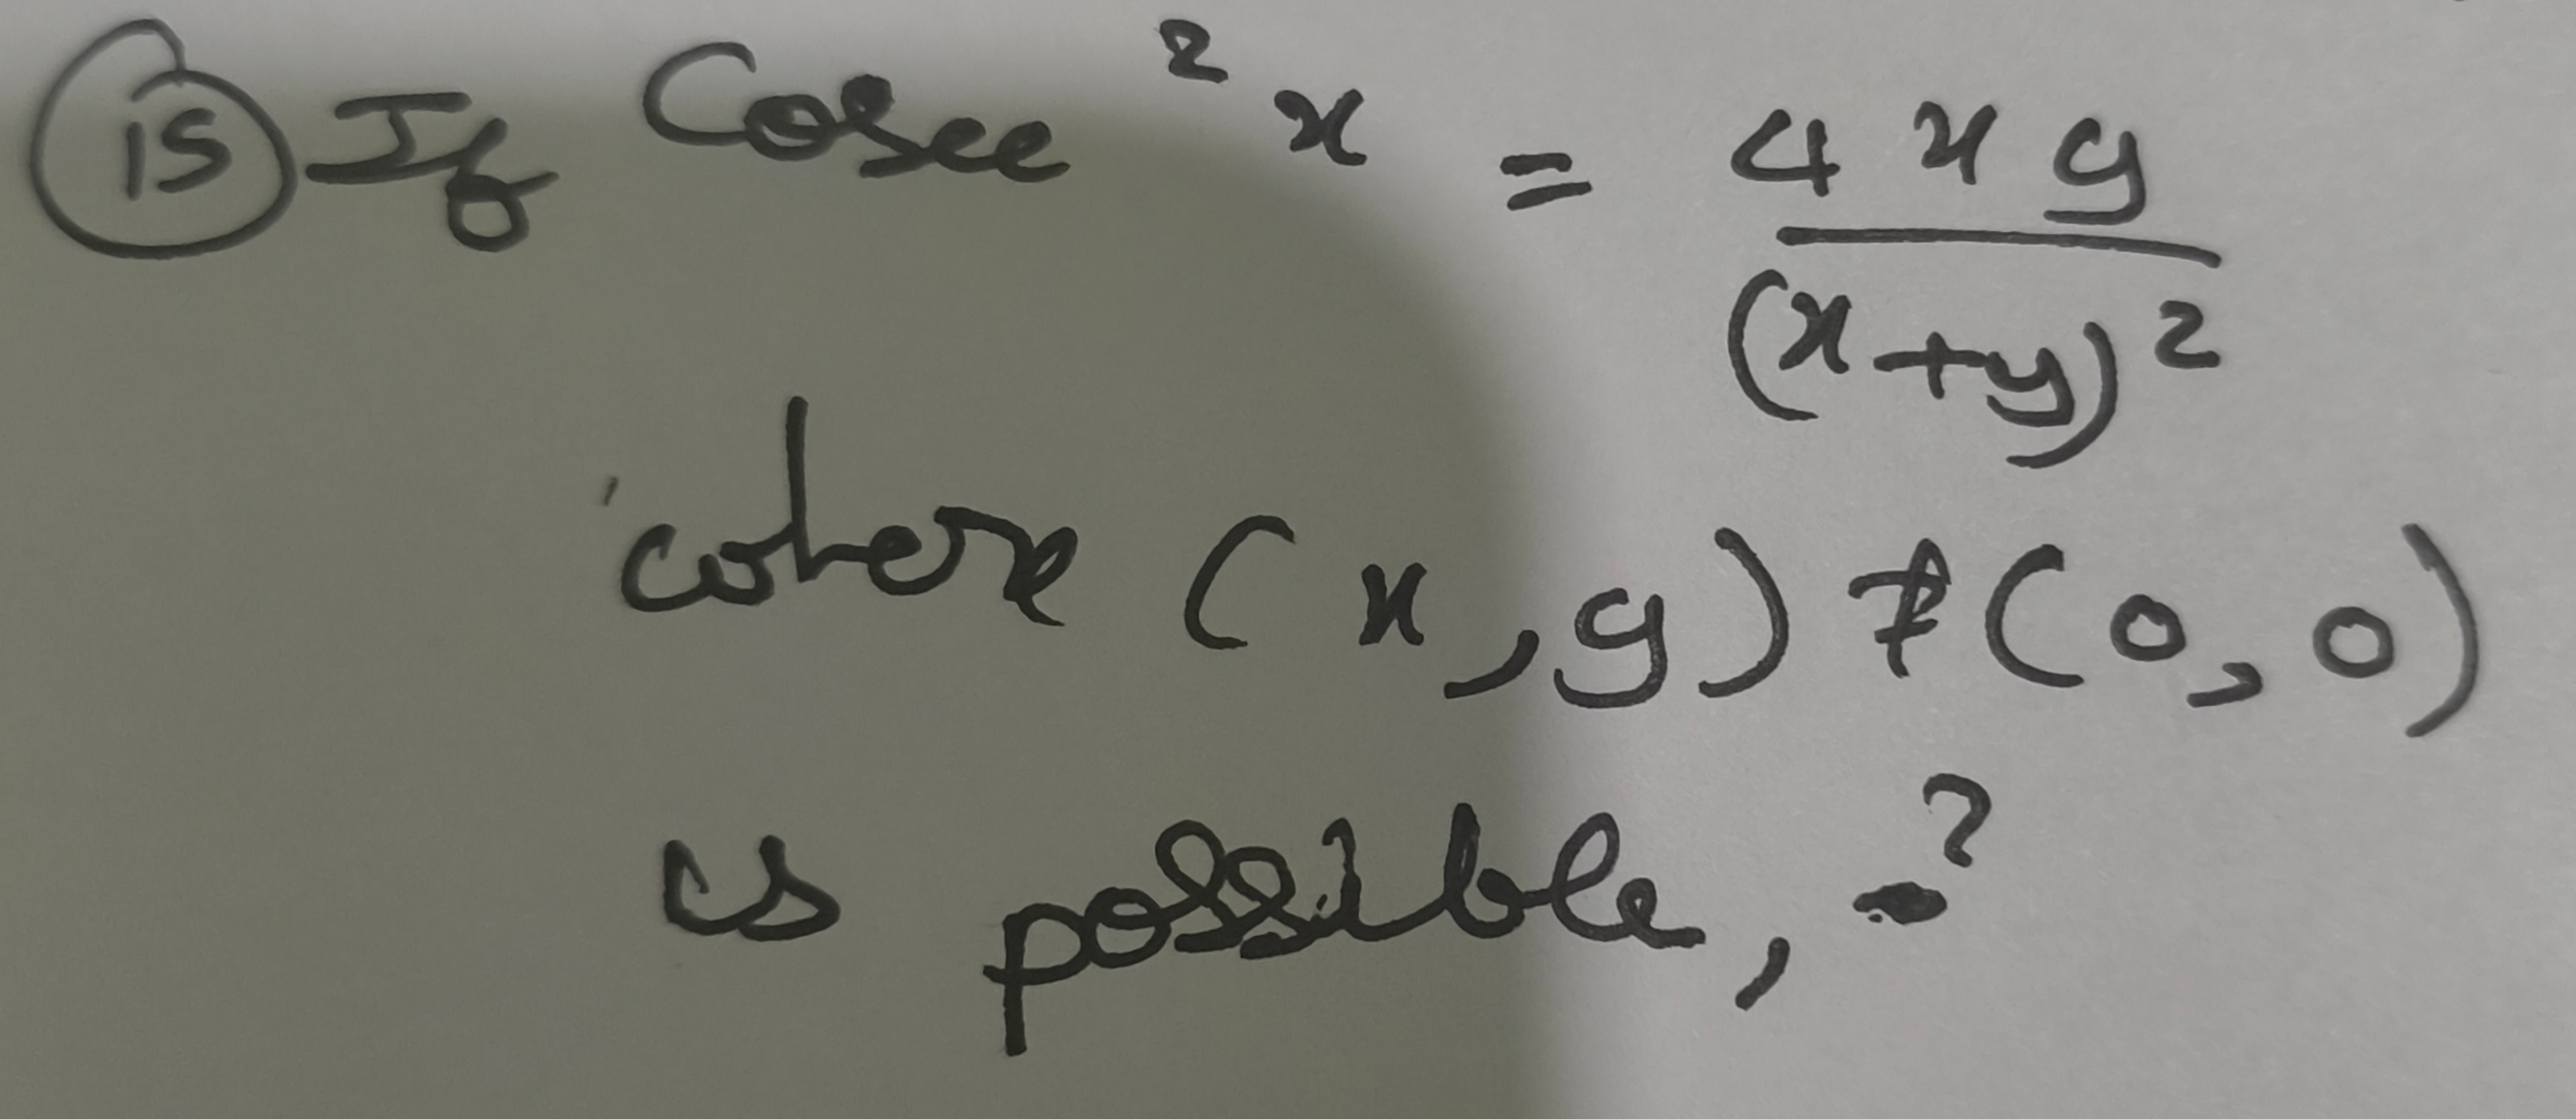 15 If Cosec²x = 4xy/(x+y)²
where (x,y) ≠ (0,0)
is possible, ?